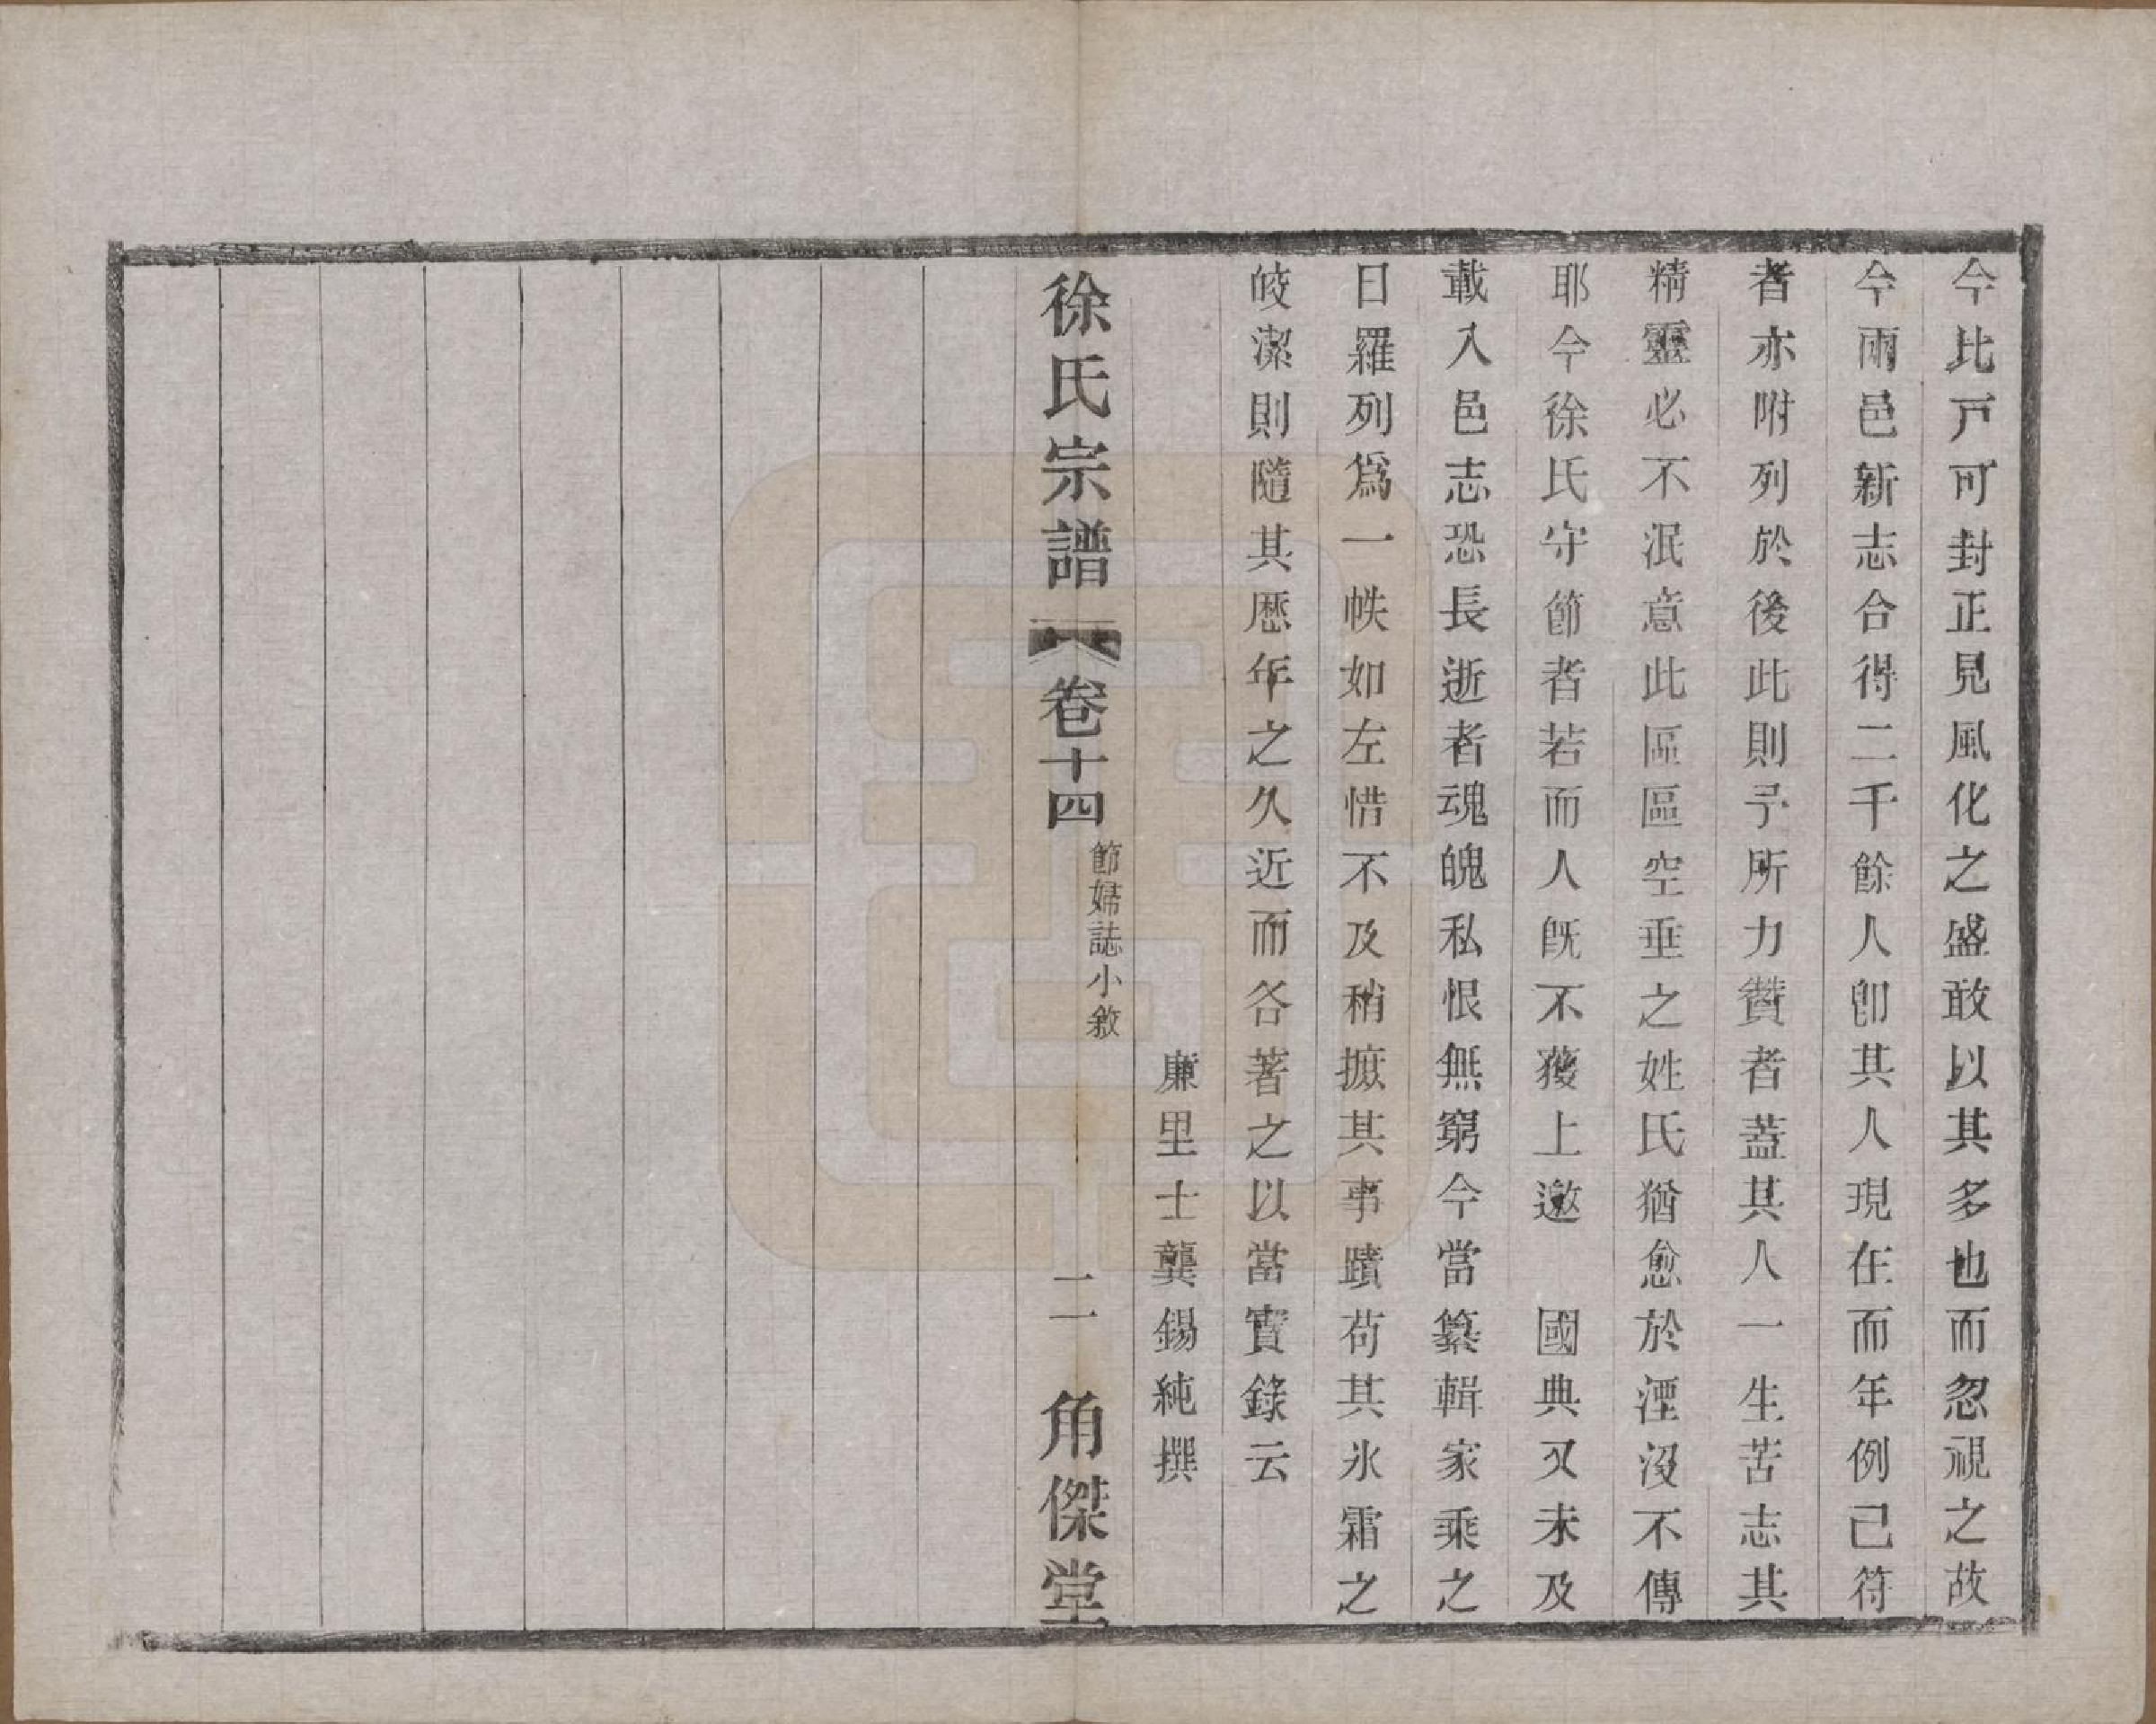 今比戸可封正見風化之盛敢以其多也而忽視之故
今兩邑新志合得二千餘人卽其人現在而年例已符
者亦附列於後此則予所力贊者蓋其人一生苦志其
精靈必不泯意此區區空垂之姓氏猶愈於湮沒不傳
耶今徐氏守節者若而人旣不獲上邀　國典又未及
載入邑志恐長逝者魂魄私恨無窮今當纂輯家乘之
日羅列爲一帙如左惜不及稍摭其事蹟苟其氷霜之
皎潔則隨其歷年之久近而各著之以當實錄云
廉里士龔錫純撰
徐氏宗譜
卷十四
節婦誌小敘
二
角傑堂